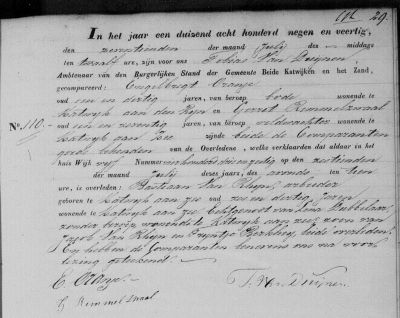 29.
In het jaar een duizend acht honderd negen en veertig,
den zeventienden der maand Julij des middags
ten twaalf ure, zijn voor ons Tobias Van Duijnen,
Ambtenaar van den Burgerlijken Stand der Gemeente Beide Katwijken en het Zand,
gecompareerd: Engelbregt Oranje
oud een en dertig jaren, van beroep bode wonende te
Katwijk aan den Rijn en Gerret Remmelzwaal
oud een en jaren, van beroep veldwachter wonende te
No. 110. Katwijk aan Zee zijnde beide de Comparanten
goede bekenden van de Overledene, welke verklaarden dat aldaar in het
huis Wijk vijf Nummer een honderd op den zestienden
der maand Julij dezes jaars, des avonds ten tien
ure, is overleden: Bastiaan Van Rhijn, arbeider
geboren te Katwijk aan Zee oud zes en dertig Jaren
wonende te Katwijk aan Zee Echtgenoot van Lena Dubbelaar,
zonder beroep wonende te Katwijk aan zee, zoon van
Jacob Van Rhijn en Trijntje beide overleden.
En hebben de Comparanten benevens ons na voor
lezing geteekend.
E. Oranje.
T. Van Duijnen.
G Remmelzwaal